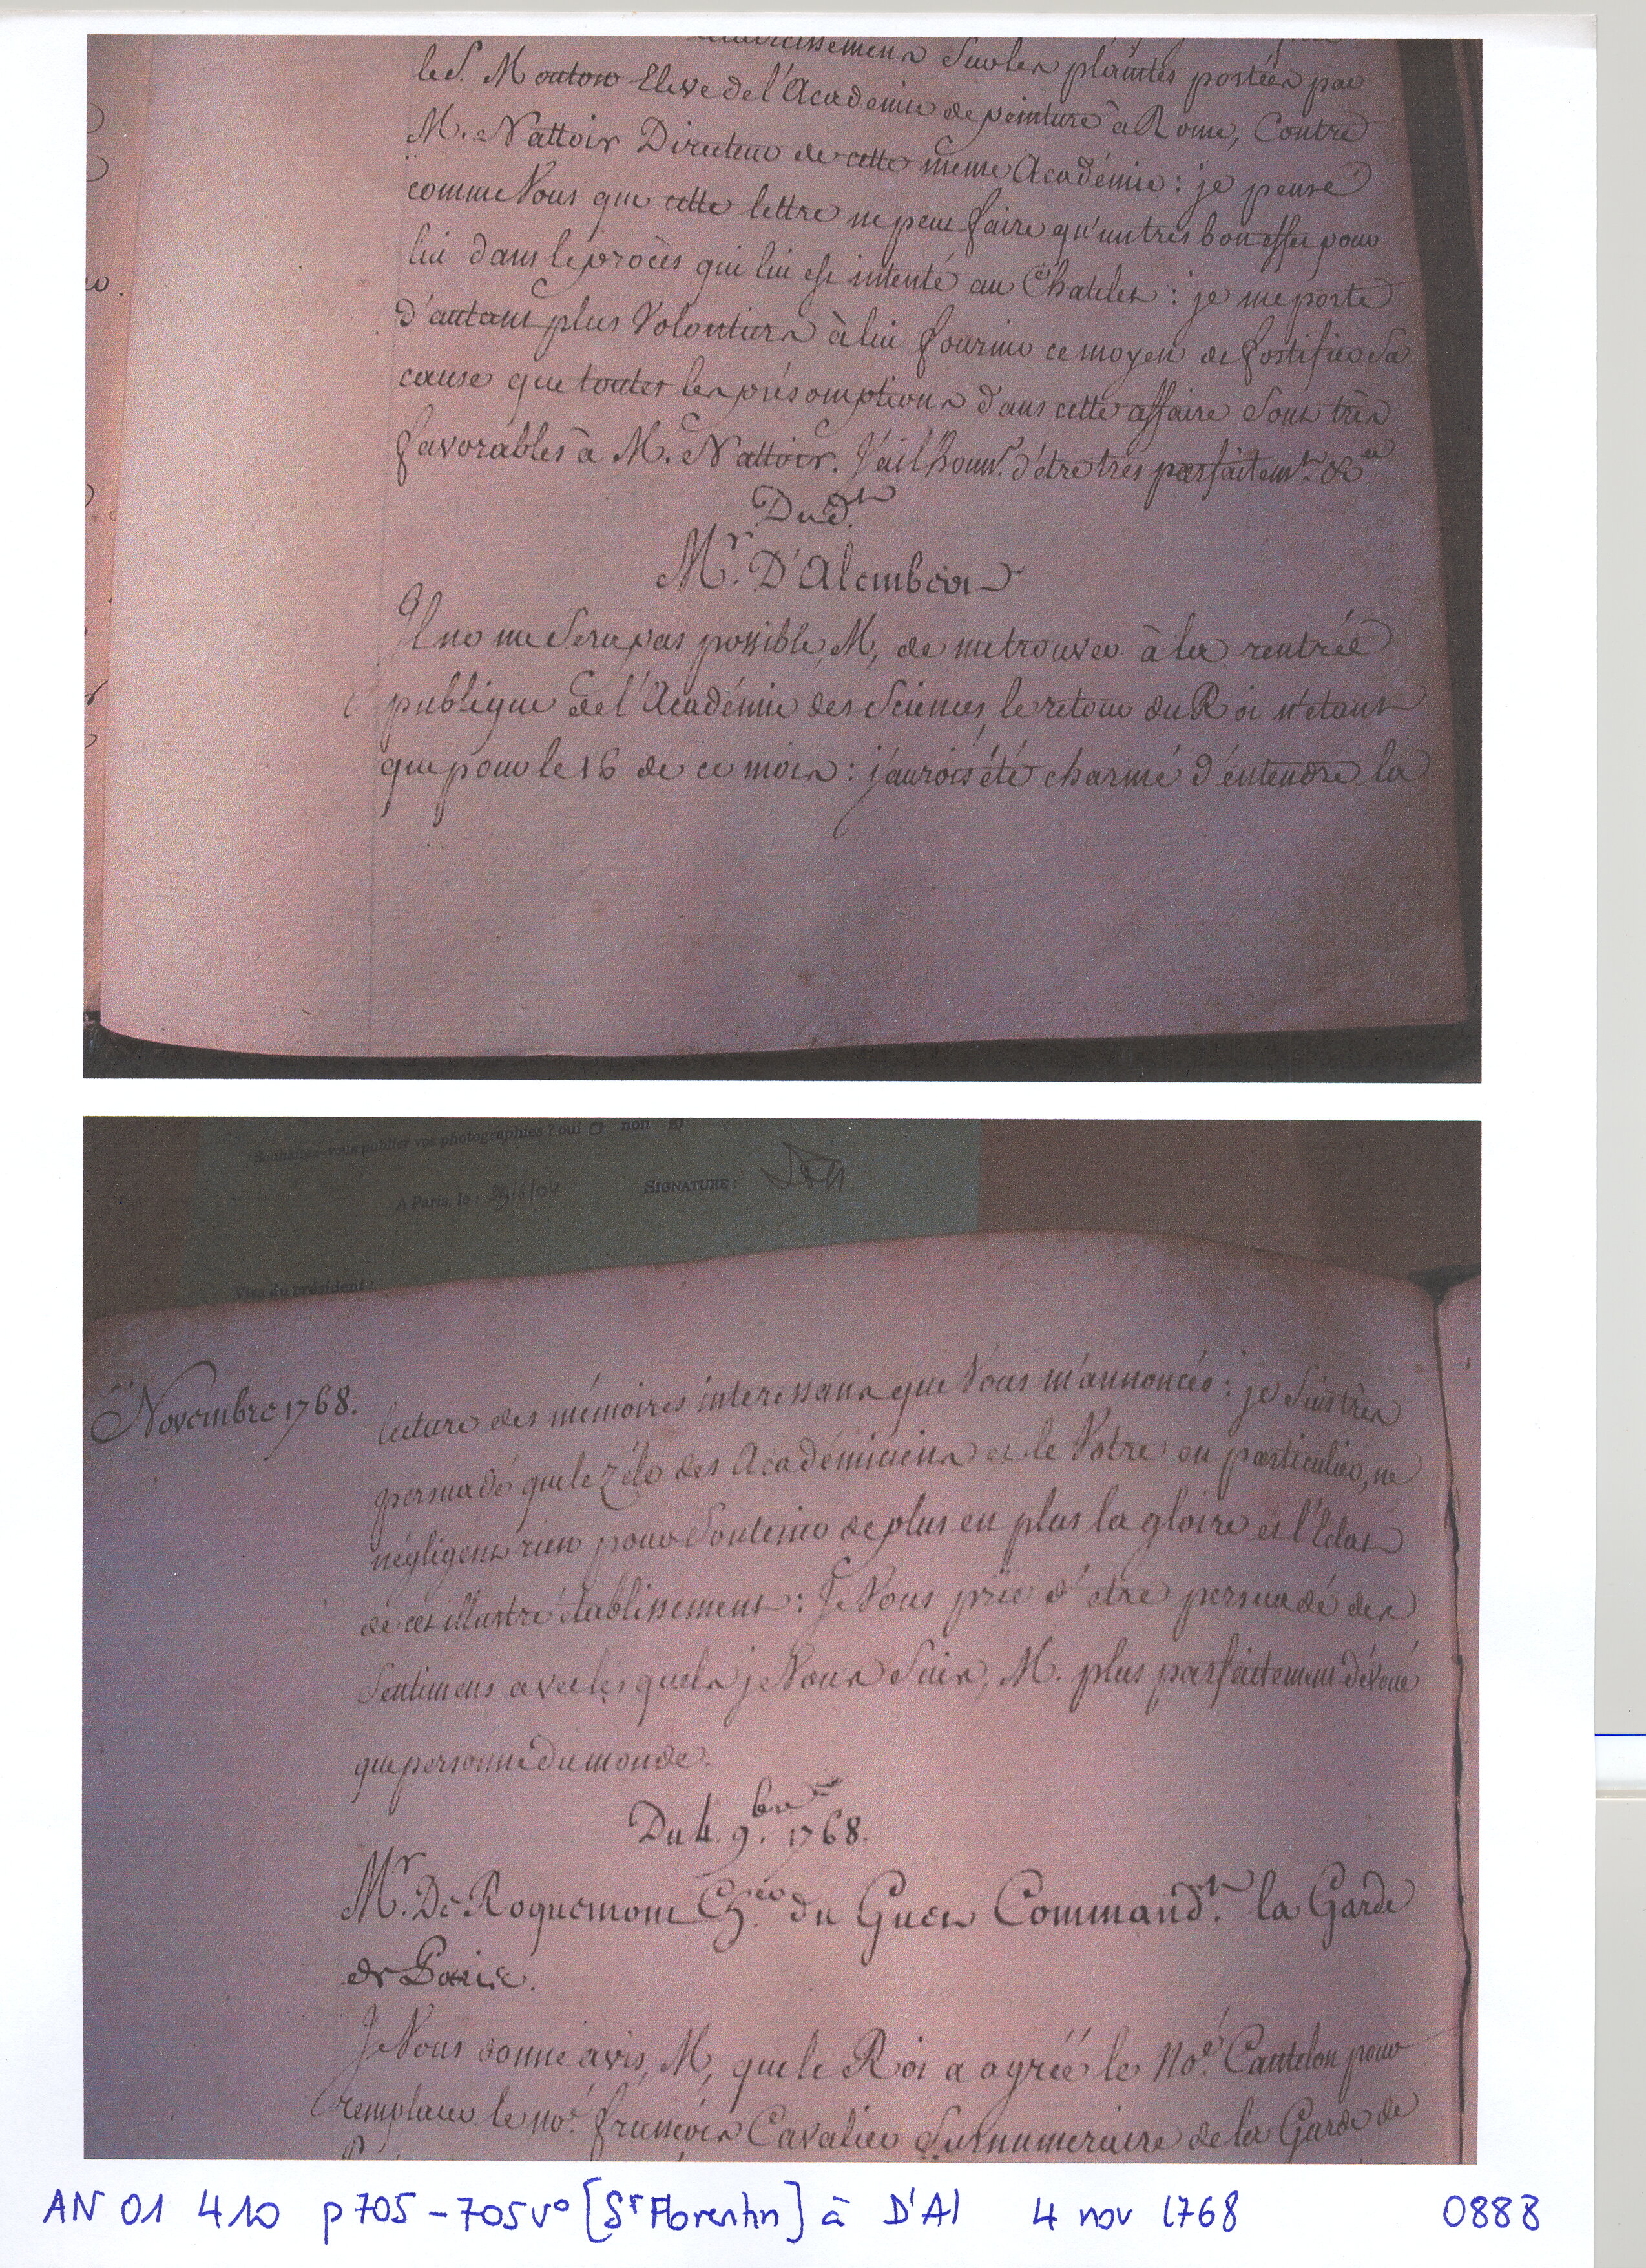 eclaircissemens Sur les plaintes portées par
le S. Mouton Eleve de l'Academie de peinture à Rome, Contre
M. Nattoir Directeur de cette meme Académie: je pense
comme Vous que cette lettre ne peut faire qu'un tres bon effet pour
lui dans le procès qui lui est intenté au Chatelet: je me porte
d'autant plus Volontiers à lui fournir ce moyen de fortifier Sa
cause que toutes les présomptions dans cette affaire Sont très
favorables à M. Nattoir. J'ai l'honn.r d'etre tres parfaitem.t &c.a
Dud.t
M.r D'Alembert
Il ne me Sera pas possible, M, de me trouver à la rentrée
publique de l'Académie des Sciences, le retour du Roi n'etant
que pour le 16 de ce mois: j'aurois été charmé d'entendre la
Souhaitez-vous publier vos photographies ? oui ☐ non ☒
A Paris, le : 28/8/04 SIGNATURE :
Visa du président :
Novembre 1768.
lecture des mémoires interessans que Vous m'annoncés: je Suis très
persuadé que le Zéle des Académiciens et le Votre en particulier, ne
négligent rien pour Soutenir de plus en plus la gloire et l'Eclat
de cet illustre établissement: Je Vous prie d'etre persuadé des
Sentimens avec lesquels je Vous Suis, M. plus parfaitement dévoué
que personne du monde.
Du 4. 9.bre 1768.
M.r De Roquemont Ch.er du Guet Command.t la Garde
de Paris.
Je Vous donne avis, M, que le Roi a agréé le no.é Cantelou pour
remplacer le no.é françois Cavalier Surnumeraire de la Garde de
AN O1 410 p705-705v° [St Florentin] à D'Al 4 nov 1768 0888